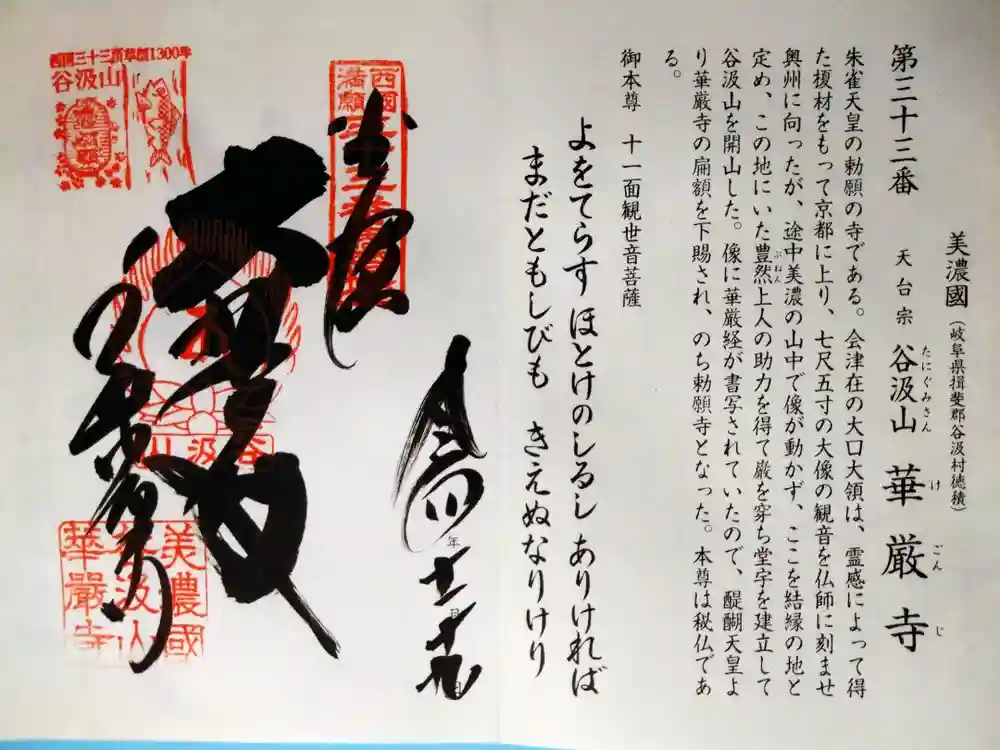 美濃國(岐阜県揖斐郡谷汲村徳積)
第三十三番 天台宗 谷汲山 華厳寺
たにぐみさん けごんじ
朱雀天皇の勅願の寺である。会津在の大口大領は、霊感によって得
た榎材をもって京都に上り、七尺五寸の大像の観音を仏師に刻ませ
奥州に向ったが、途中美濃の山中で像が動かず、ここを結縁の地と
定め、この地にいた豊然上人の助力を得て厳を穿ち堂宇を建立して
ぶねん
谷汲山を開山した。像に華厳経が書写されていたので、醍醐天皇よ
り華厳寺の扁額を下賜され、のち勅願寺となった。本尊は秘仏であ
る。
御本尊 十一面観世音菩薩
よをてらす ほとけのしるし ありければ
まだともしびも きえぬなりけり
年十一月十九日
奉拝
西國
満願
三十三番
西国三十三所草創1300年
谷汲山
谷汲山
美濃國
谷汲山
華嚴寺